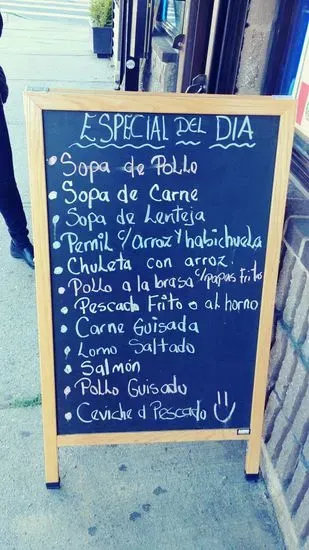 ESPECIAL DEL DIA
• Sopa de Pollo
• Sopa de Carne
• Sopa de Lenteja
• Pernil c/arroz y habichuela
• Chuleta con arroz
• Pollo a la brasa c/papas fritas
• Pescado Frito o al horno
• Carne Guisada
• Lomo Saltado
• Salmón
• Pollo Guisado
• Ceviche d Pescado